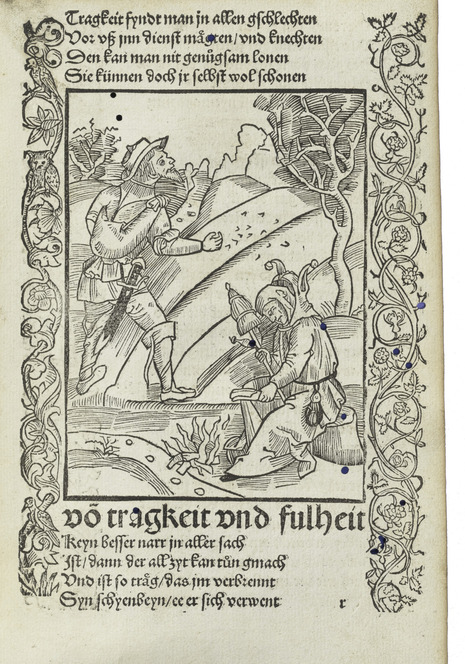 Tragkeit fyndt man jn allen gschlechten
Vor vß jnn dienst mägten/vnd knechten
Den kan man nit genůgsam lonen
Sie künnen doch jr selbst wol schonen
võ tragkeit vnd fulheit
Keyn besser narr jn aller sach
Ist/dann der all zyt kan tůn gmach
Vnd ist so träg/das jm verbrennt
Syn schyenbeyn/ee er sich verwent
r